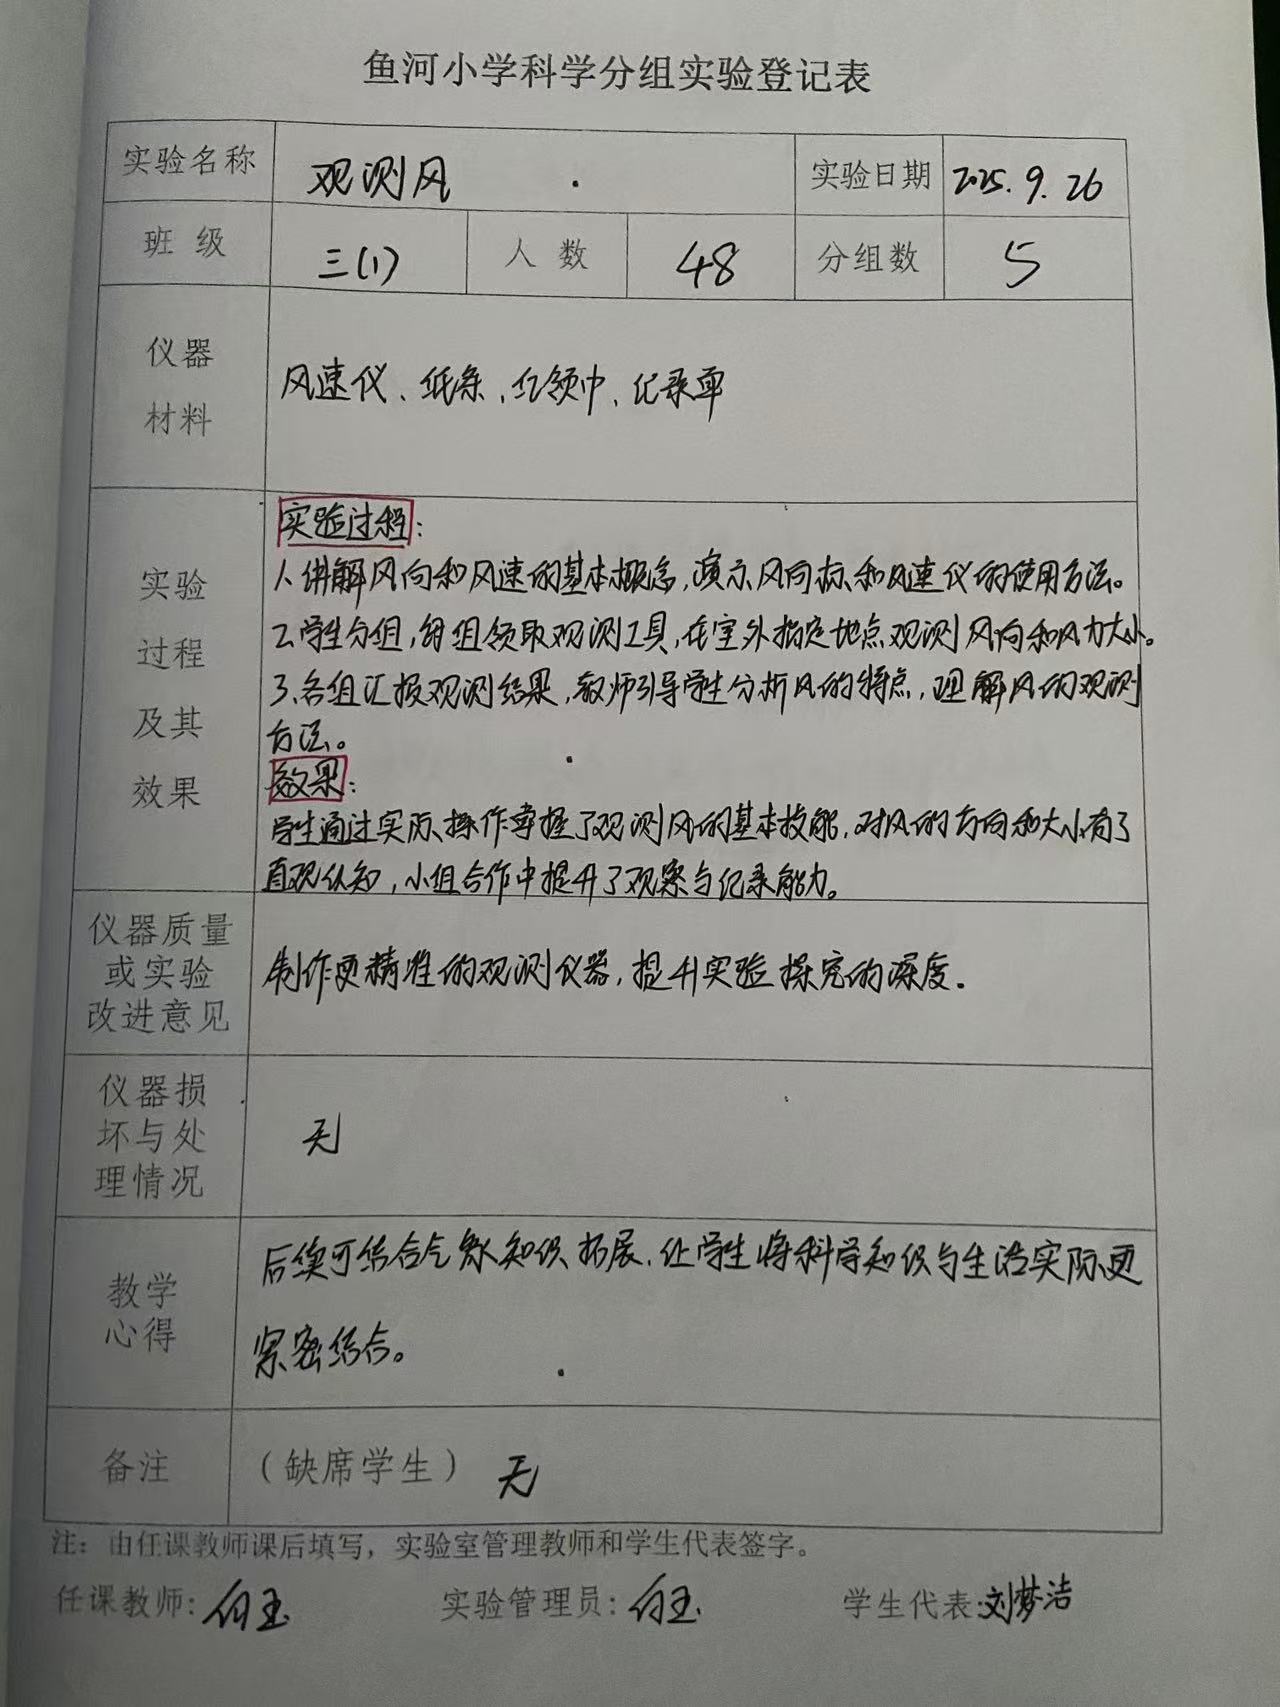 鱼河小学科学分组实验登记表
实验名称 观测风 实验日期 2025.9.26
班级 三(1) 人数 48 分组数 5
仪器
材料
风速仪、纸条、红领巾、记录单
实验
过程
及其
效果
实验过程:
1、讲解风向和风速的基本概念,演示风向标和风速仪的使用方法。
2、学生分组,每组领取观测工具,在室外指定地点观测风向和风力大小。
3、各组汇报观测结果,教师引导学生分析风的特点,理解风的观测
方法。
效果:
学生通过实际操作掌握了观测风的基本技能,对风的方向和大小有了
直观认知,小组合作中提升了观察与记录能力。
仪器质量
或实验
改进意见
制作更精准的观测仪器,提升实验探究的深度。
仪器损
坏与处
理情况
无
教学
心得
后续可结合气象知识拓展,让学生将科学知识与生活实际更
紧密结合。
备注 (缺席学生) 无
注:由任课教师课后填写,实验室管理教师和学生代表签字。
任课教师: 实验管理员: 学生代表:刘梦洁